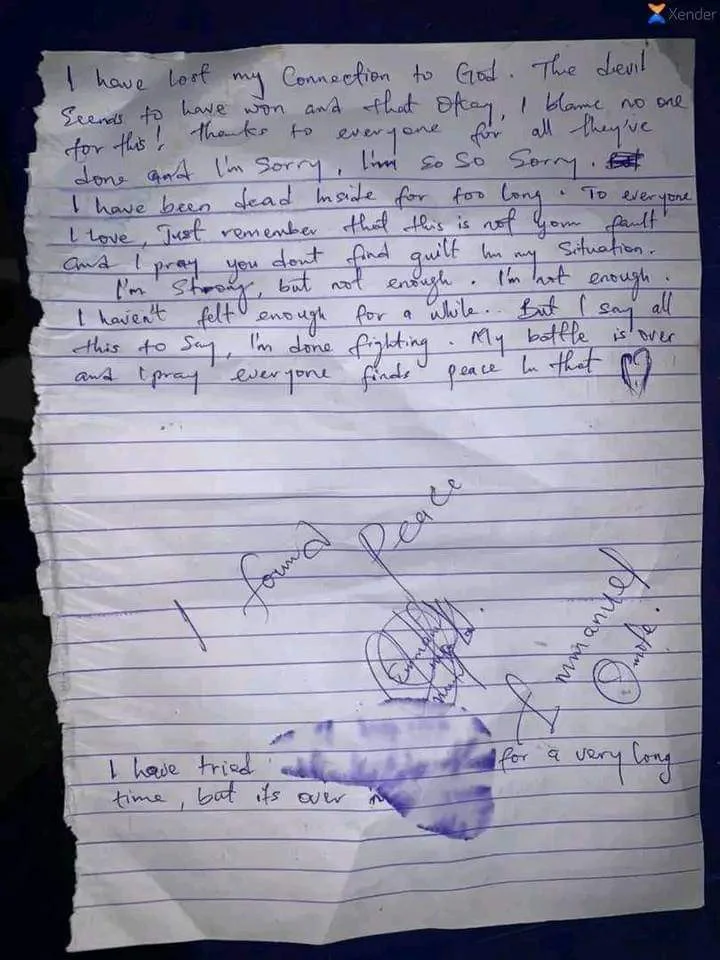 Xender
I have lost my Connection to God. The devil
Seems to have won and that Okay, I blame no one
for this! thanks to everyone for all they've
done and I'm Sorry, I'm So So Sorry.
I have been dead Inside for too long. To everyone
I Love, Just remember that this is not your fault
and I pray you dont find guilt In my Situation.
I'm Strong, but not enough. I'm not enough.
I haven't felt enough for a while.. But I say all
this to Say, I'm done fighting. My battle is over
and I pray everyone finds peace In that
I found Peace
Emmanuel
Omafe.
I have tried for a very long
time, but its over